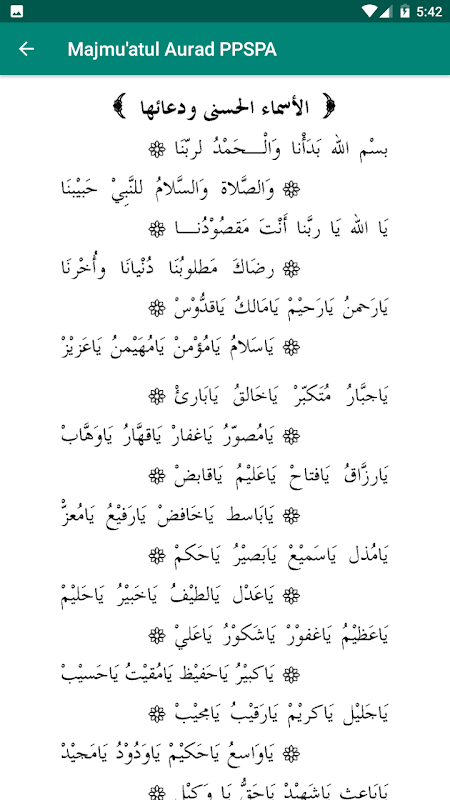 5:42
Majmu'atul Aurad PPSPA
الأسماء الحسنى ودعائها
بسْم الله بَدَأْنا وَالْـــحَمْدُ لربّنَا
وَالصَّلاة وَالسَّلامُ للنَّبِيْ حَبِيْبنَا
يَا الله يَا ربَّنا أَنْتَ مَقصُوْدُنــا
رضَاكَ مَطلوبُنَا دُنْيانَا وأُخْرنَا
يَارَحمنُ يَارَحيْمْ يَامَالكُ يَاقدُّوْسْ
يَاسَلامُ يَامُؤْمنْ يَامُهَيْمنُ يَاعَزيْزْ
يَاجبَّارُ مُتَكبّرْ يَاخَالقُ يَابَارئْ
يَامُصوّرُ يَاغفارْ يَاقهَّارُ يَاوَهَّابْ
يَارزَّاقُ يَافتاحْ يَاعَليْمُ يَاقابضْ
يَابَاسط يَاخَافضْ يَارَفيْعُ يَامُعزّْ
يَامُذل يَاسَميْعْ يَابَصيْرُ يَاحَكمْ
يَاعَدْل يَالطيْفُ يَاخَبيْرُ يَاحَليْمْ
يَاعَظيْمُ يَاغفوْرْ يَاشَكوْرُ يَاعَليْ
يَاكبيْرُ يَاحَفيْظ يَامُقيْتُ يَاحَسيْبْ
يَاجَليْل يَاكريْمْ يَارَقيْبُ يَامجيْبْ
يَاوَاسعُ يَاحَكيْمْ يَاوَدُوْدُ يَامَجيْدْ
يَابَاعث يَاشَهيْدْ يَاحَقُّ يَا وَكيْل